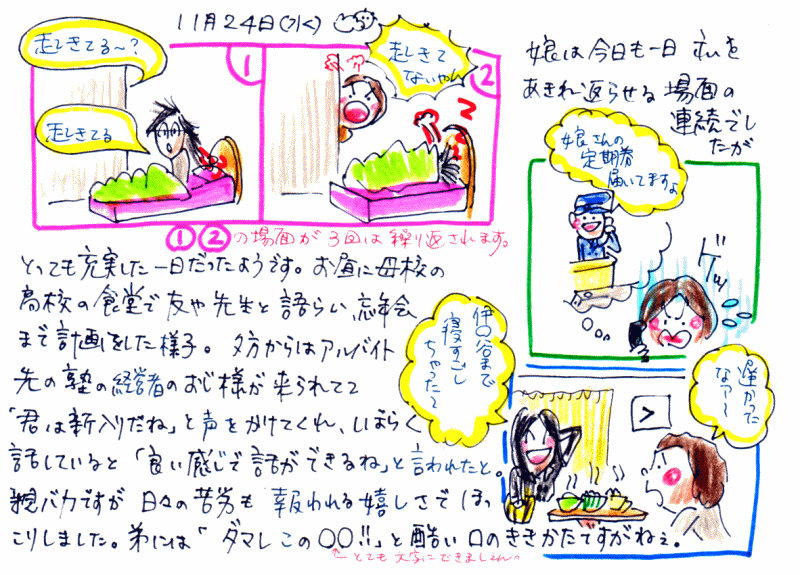 11月24日(水)
起きてる〜?
起きてる
①
起きてないやん
②
①②の場面が3回は繰り返されます。
娘は今日も一日
あきれ返らせる場面の
連続でし
たが
娘さんの
定期券
届いてますよ
ゲッ
とっても充実した一日だったようです。お昼に母校の
高校の食堂で友や先生と語らい、忘年会
まで計画をした様子。夕方からはアルバイト
先の塾の経営者のおじ様が来られてて
「君は新入りだね」と声をかけてくれ、しばらく
話していると「良い感じで話ができるね」と言われたと。
親バカですが日々の苦労も報われる嬉しさでほっ
こりしました。弟には「ダマレこの○○!!」と酷い口のききかたですがねぇ。
とても文字にできましぇん。
伊口谷まで
寝すごし
ちゃった〜
遅かった
なァ〜